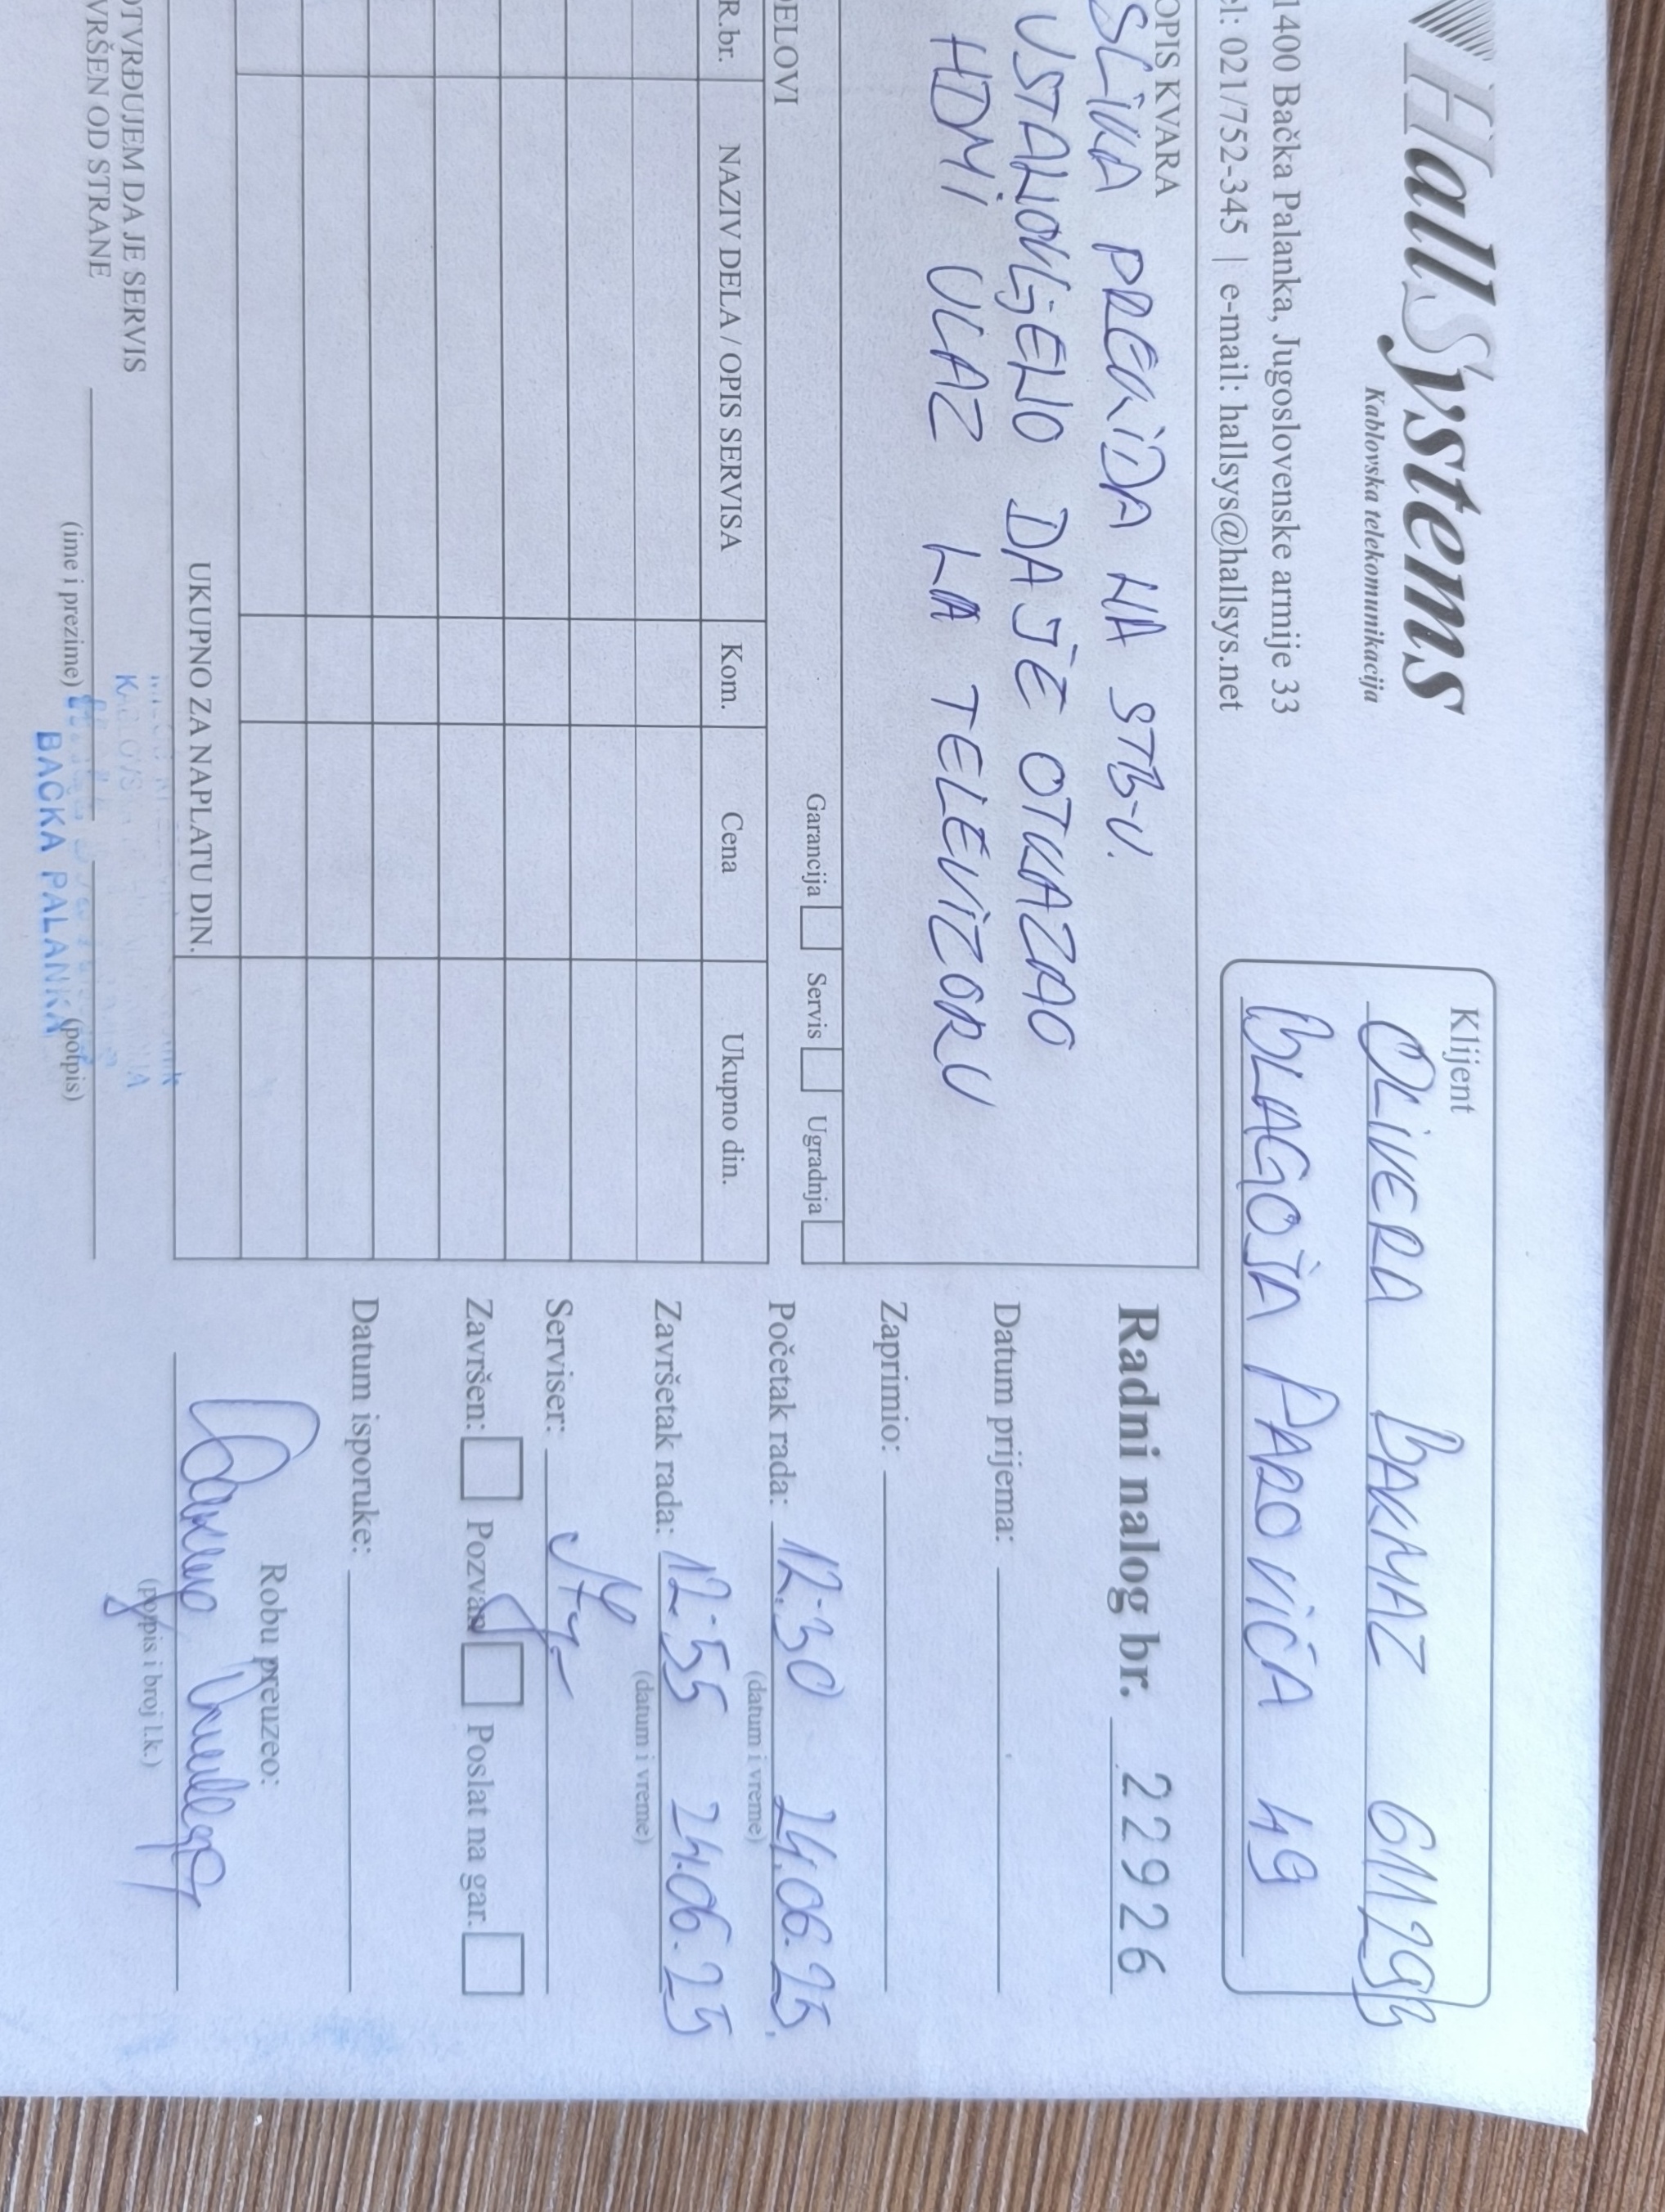 HallSystems
Kablovska telekomunikacija
1400 Bačka Palanka, Jugoslovenske armije 33
el: 021/752-345 | e-mail: hallsys@hallsys.net
Klijent
OLIVERA BAKMAZ
BLAGOJA PAROVIĆA 49
OPIS KVARA
SLIKA PREKIDA NA STB-U.
USTANOVLJENO DA JE OTKAZAO
HDMI ULAZ NA TELEVIZORU
Garancija Servis Ugradnja
DELOVI
R.br. NAZIV DELA / OPIS SERVISA Kom. Cena Ukupno din.
UKUPNO ZA NAPLATU DIN.
OTVRĐUJEM DA JE SERVIS
VRŠEN OD STRANE
(ime i prezime) (potpis)
BAČKA PALANKA
Radni nalog br. 22926
Datum prijema:
Zaprimio:
Početak rada: 12:30 24.06.25.
(datum i vreme)
Završetak rada: 12:55 24.06.25
(datum i vreme)
Serviser:
Završen: Pozvan Poslat na gar.
Datum isporuke:
Robu preuzeo:
(potpis i broj l.k.)